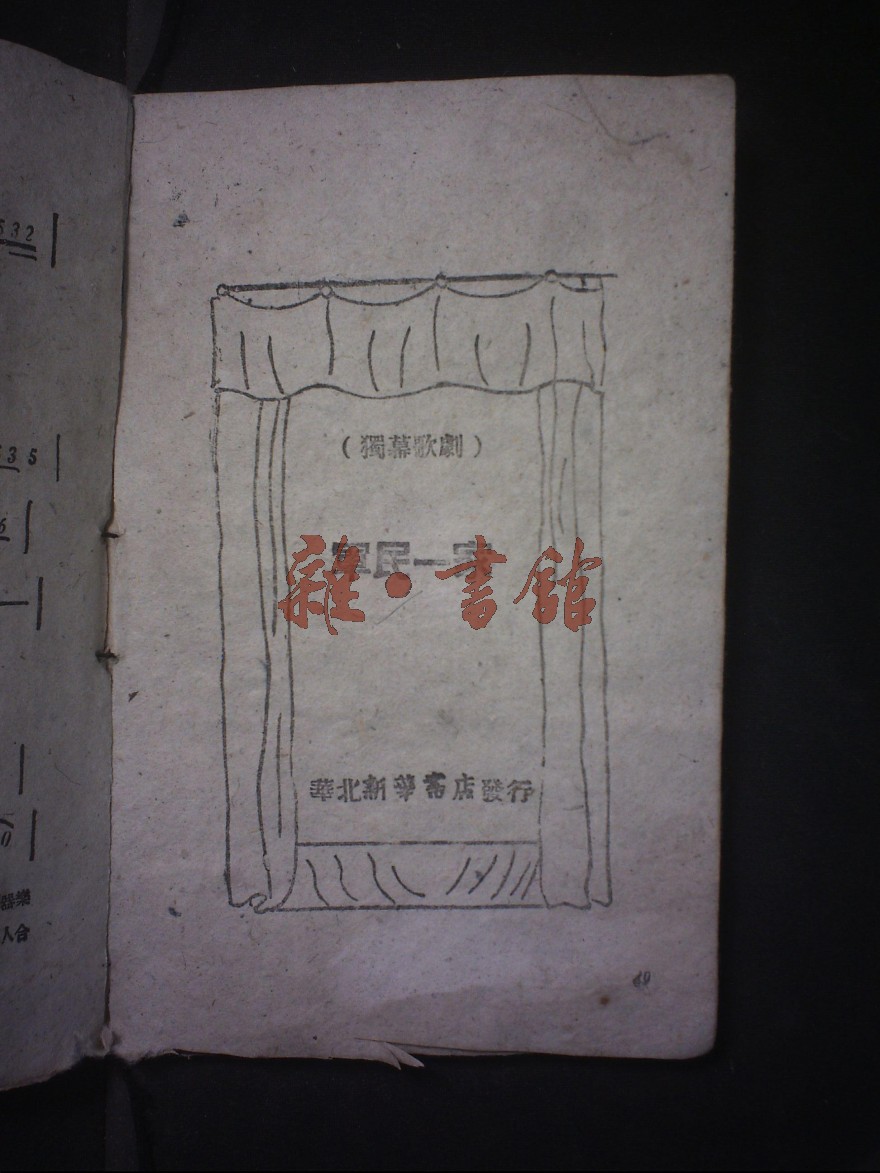 532
35
6
0
器樂
人合
（獨幕歌劇）
軍民一家
雜·書館
華北新華書店發行